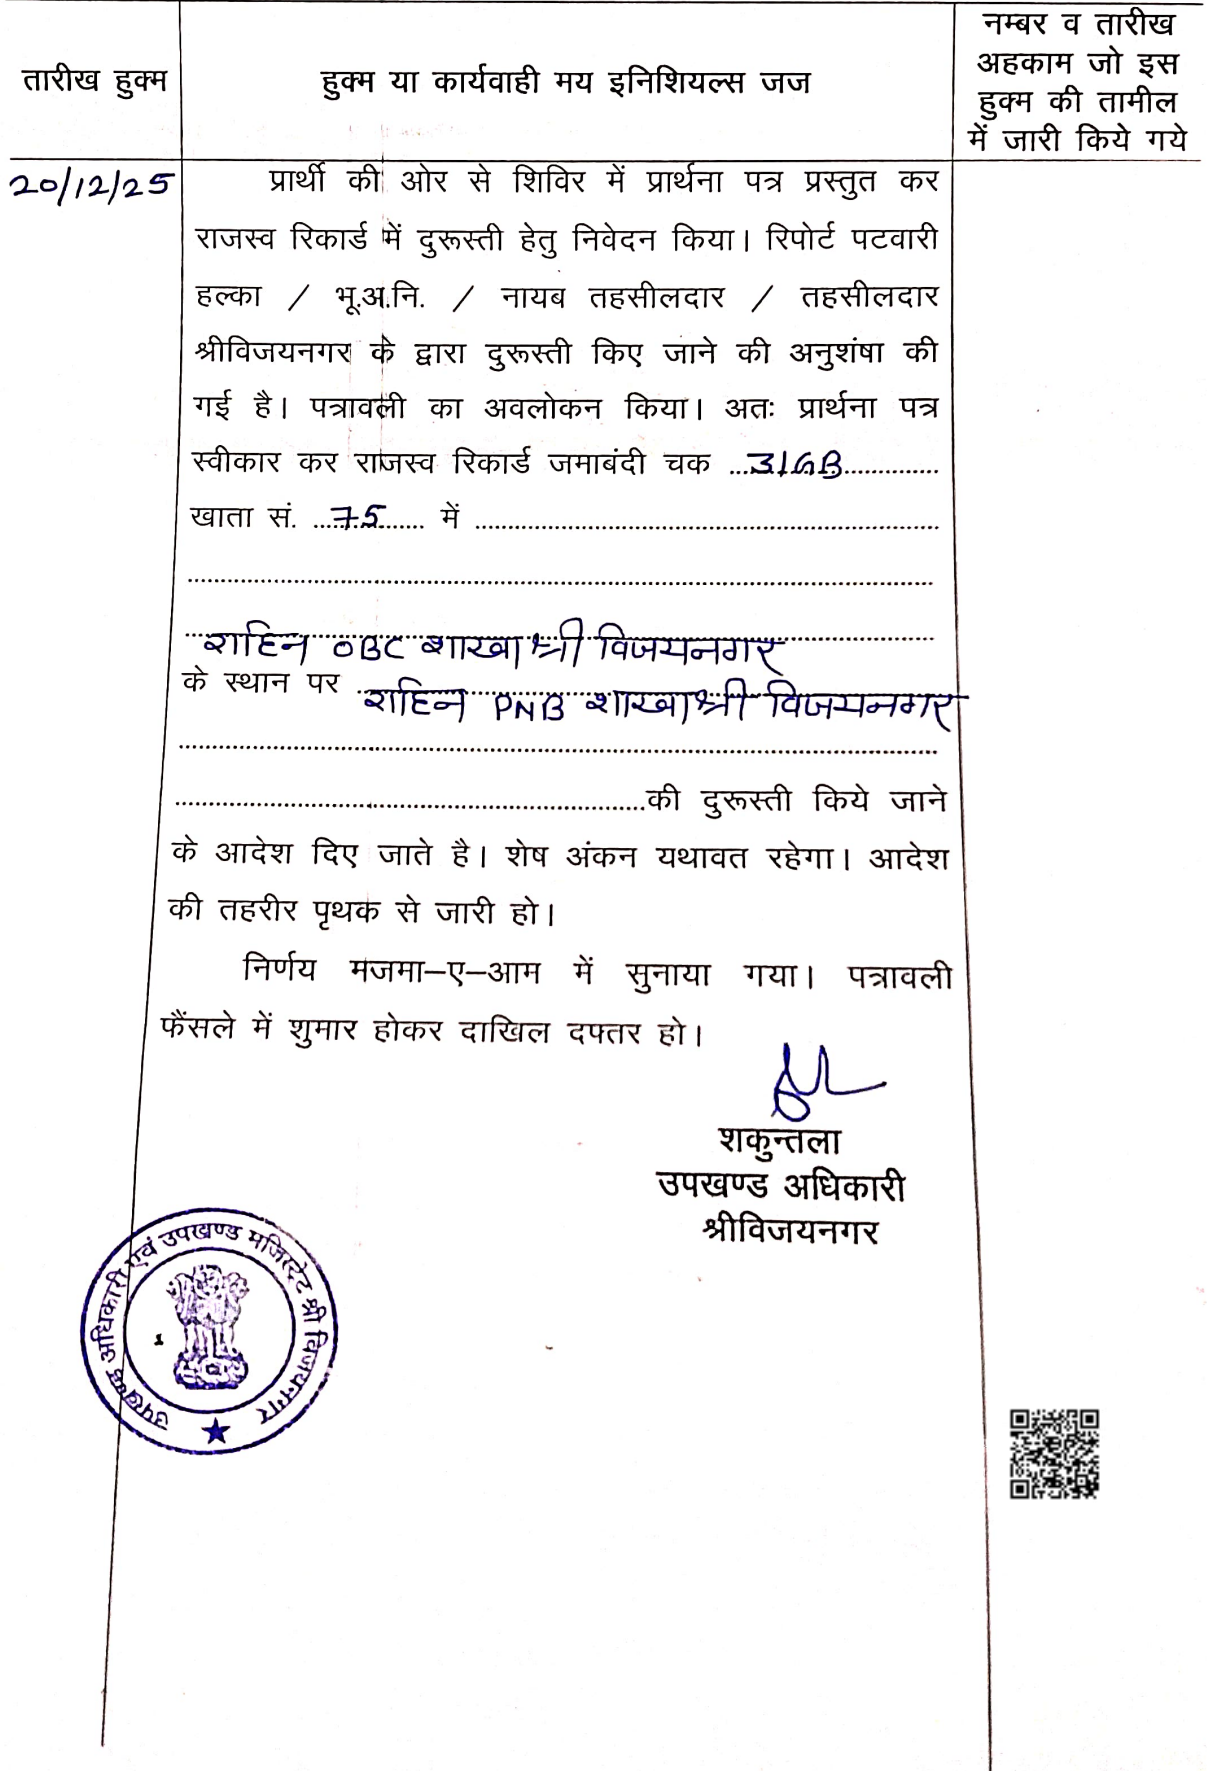 तारीख हुक्म
हुक्म या कार्यवाही मय इनिशियल्स जज
नम्बर व तारीख
अहकाम जो इस
हुक्म की तामील
में जारी किये गये
20/12/25
प्रार्थी की ओर से शिविर में प्रार्थना पत्र प्रस्तुत कर
राजस्व रिकार्ड में दुरूस्ती हेतु निवेदन किया। रिपोर्ट पटवारी
हल्का / भू.अ.नि. / नायब तहसीलदार / तहसीलदार
श्रीविजयनगर के द्वारा दुरूस्ती किए जाने की अनुशंषा की
गई है। पत्रावली का अवलोकन किया। अतः प्रार्थना पत्र
स्वीकार कर राजस्व रिकार्ड जमाबंदी चक ...31GB...............
खाता सं. ...75....... में ...............................................
...............................................
राहिन OBC शाखा श्री विजयनगर
के स्थान पर राहिन PNB शाखा श्री विजयनगर
...............................................
...............................................की दुरूस्ती किये जाने
के आदेश दिए जाते है। शेष अंकन यथावत रहेगा। आदेश
की तहरीर पृथक से जारी हो।
निर्णय मजमा–ए–आम में सुनाया गया। पत्रावली
फैंसले में शुमार होकर दाखिल दफ्तर हो।
शकुन्तला
उपखण्ड अधिकारी
श्रीविजयनगर
उपखण्ड अधिकारी एवं उपखण्ड मजिस्ट्रेट श्री विजयनगर